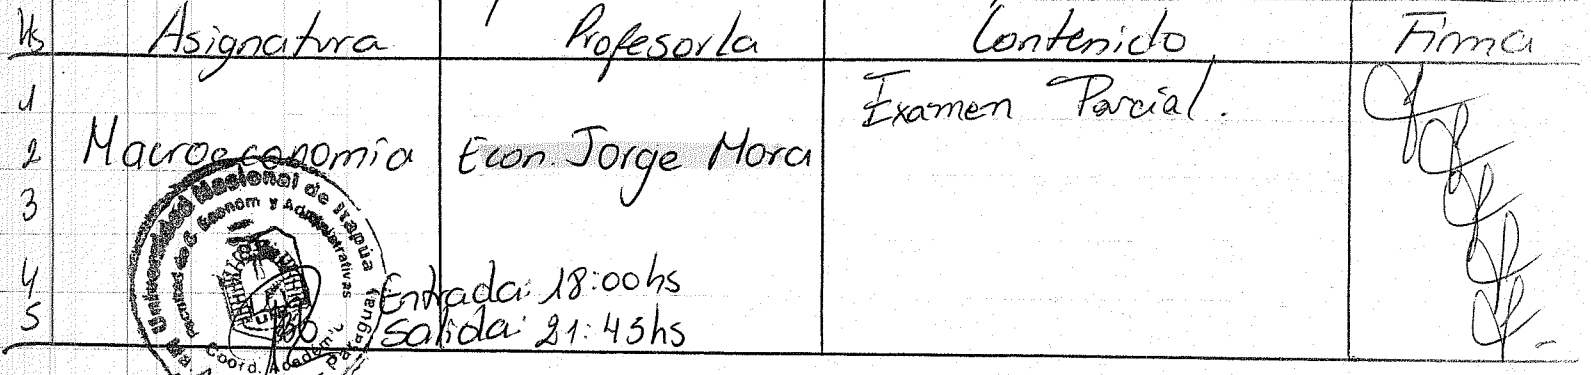 Hs Asignatura Profesor/a Contenido Firma
1 Examen Parcial.
2 Macroeconomía Econ. Jorge Mora
3
4 Entrada: 18:00hs
5 Salida: 21:45hs
Universidad Nacional de Itapúa
Facultad de C. Econom y Administrativas
Coord. Academ.
Paraguay